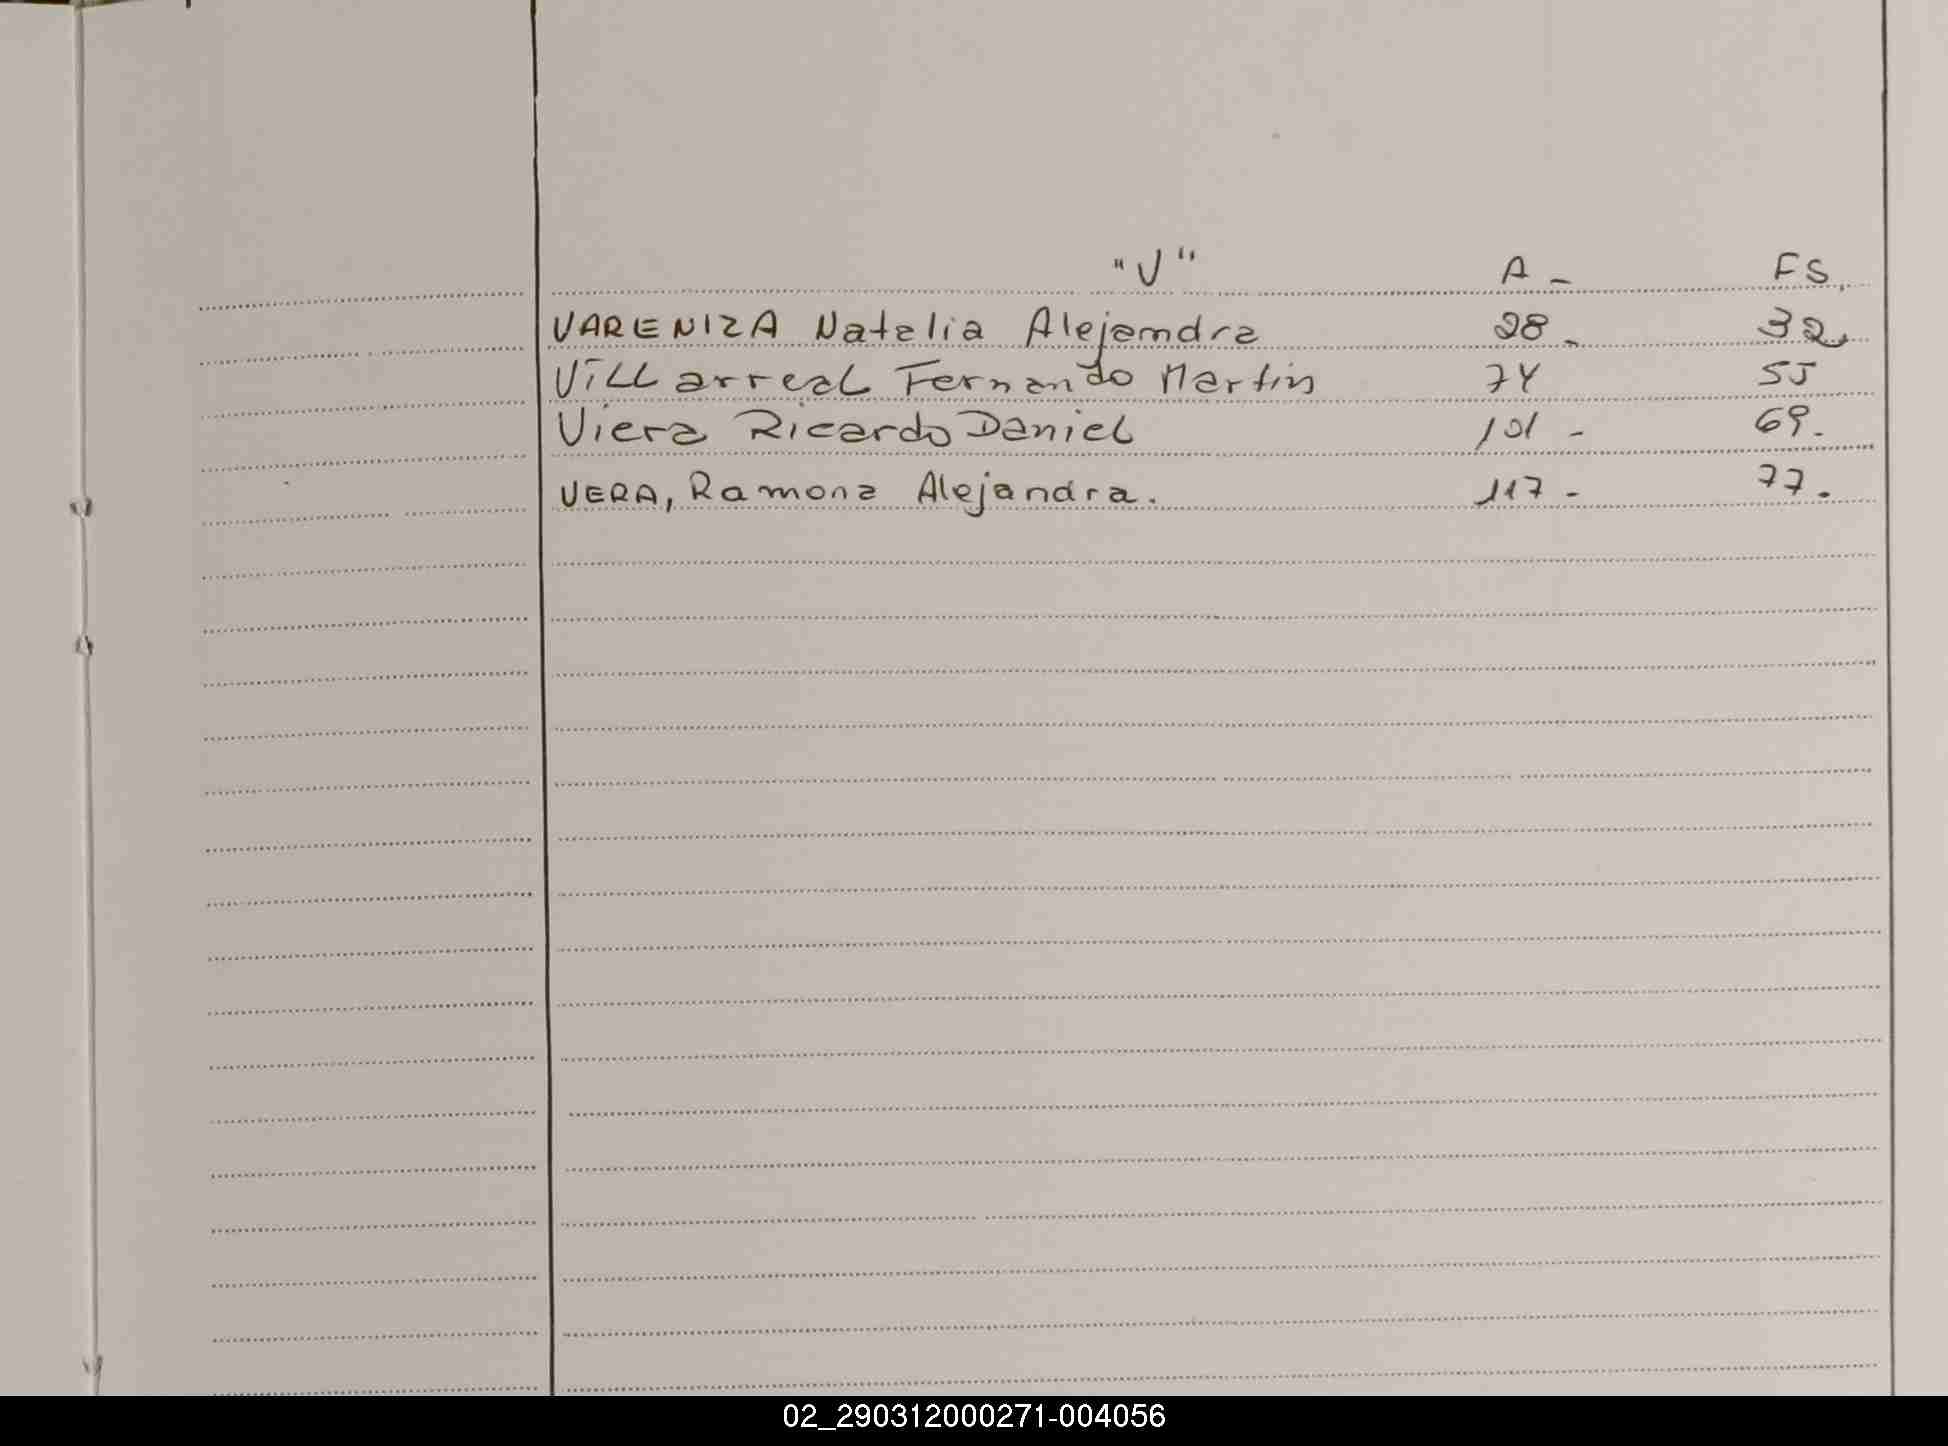 "V" A - FS.
VARENIZA Natalia Alejandra 28. 32.
Villarreal Fernando Martin 74 55
Viera Ricardo Daniel 101 - 69.
VERA, Ramona Alejandra. 117 - 77.
02_290312000271-004056